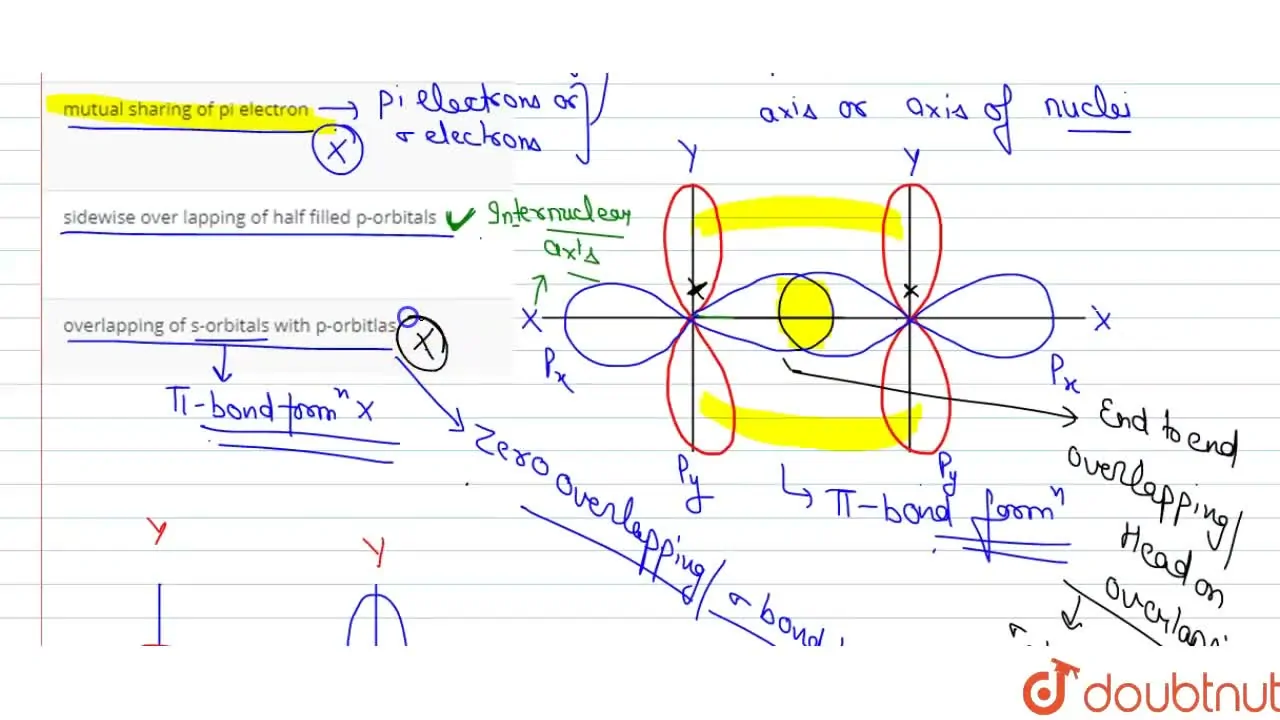 mutual sharing of pi electron → pi electrons or
σ electrons
X
axis or axis of nuclei
Y Y
sidewise over lapping of half filled p-orbitals ✓ Internuclear
axis
X X
Px Px
overlapping of s-orbitals with p-orbitlas X
π-bond formⁿ X
Zero overlapping/σ bond
Py Py
π-bond formⁿ
End to end
overlapping/
Head on
Y Y
doubtnut